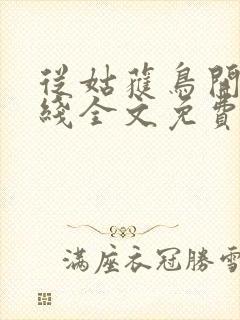 從姑蒦鳥開
綫全文免費
滿座衣冠勝雪